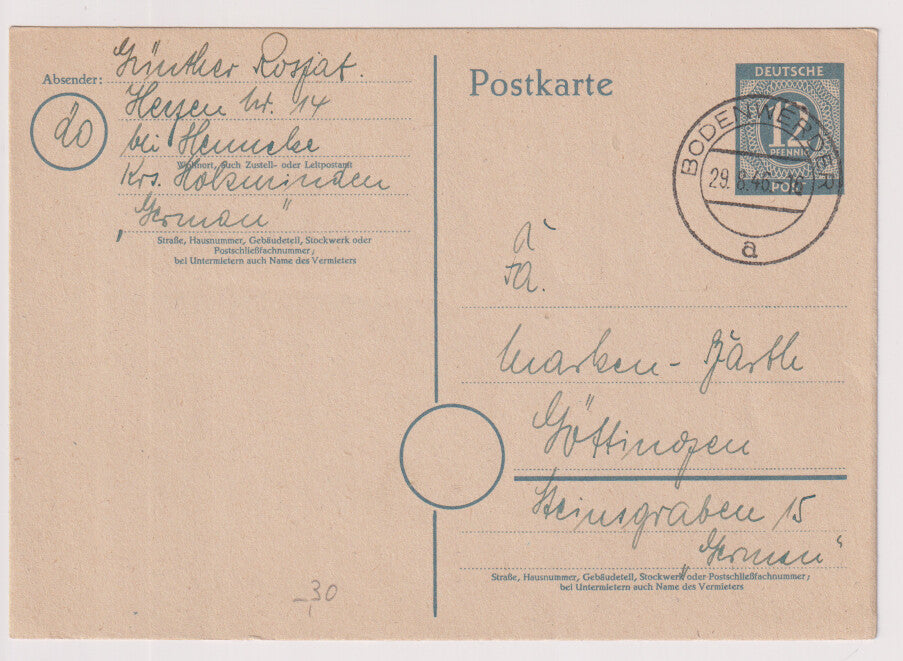 Absender: Günther Rospat.
Heyen Nr. 14
20
bei Hennecke
Wohnort, auch Zustell- oder Leitpostamt
Krs. Holzminden
„German“
Straße, Hausnummer, Gebäudeteil, Stockwerk oder
Postschließfachnummer;
bei Untermietern auch Name des Vermieters
Postkarte
DEUTSCHE
12
PFENNIG
POST
BODENWERDER
29.8.46
a
Fa.
Marken-Bartle
Göttingen
Steinsgraben 15
„German“
Straße, Hausnummer, Gebäudeteil, Stockwerk oder Postschließfachnummer;
bei Untermietern auch Name des Vermieters
-30